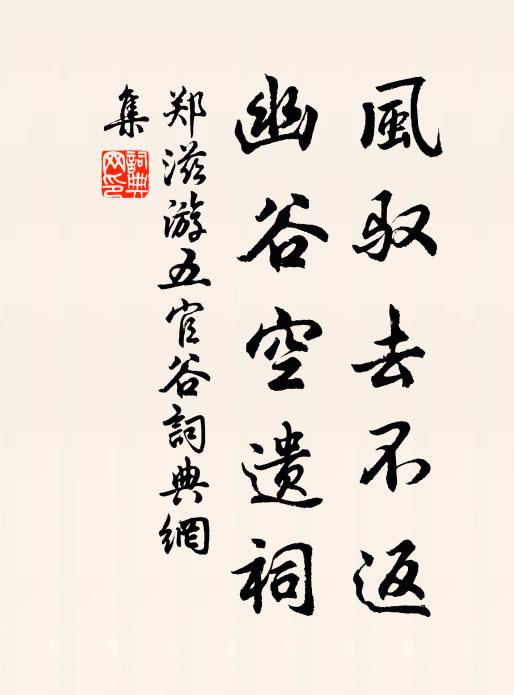 風驭去不返
幽谷空遗祠
郑滋游五官谷詞典網
集
詞典网印